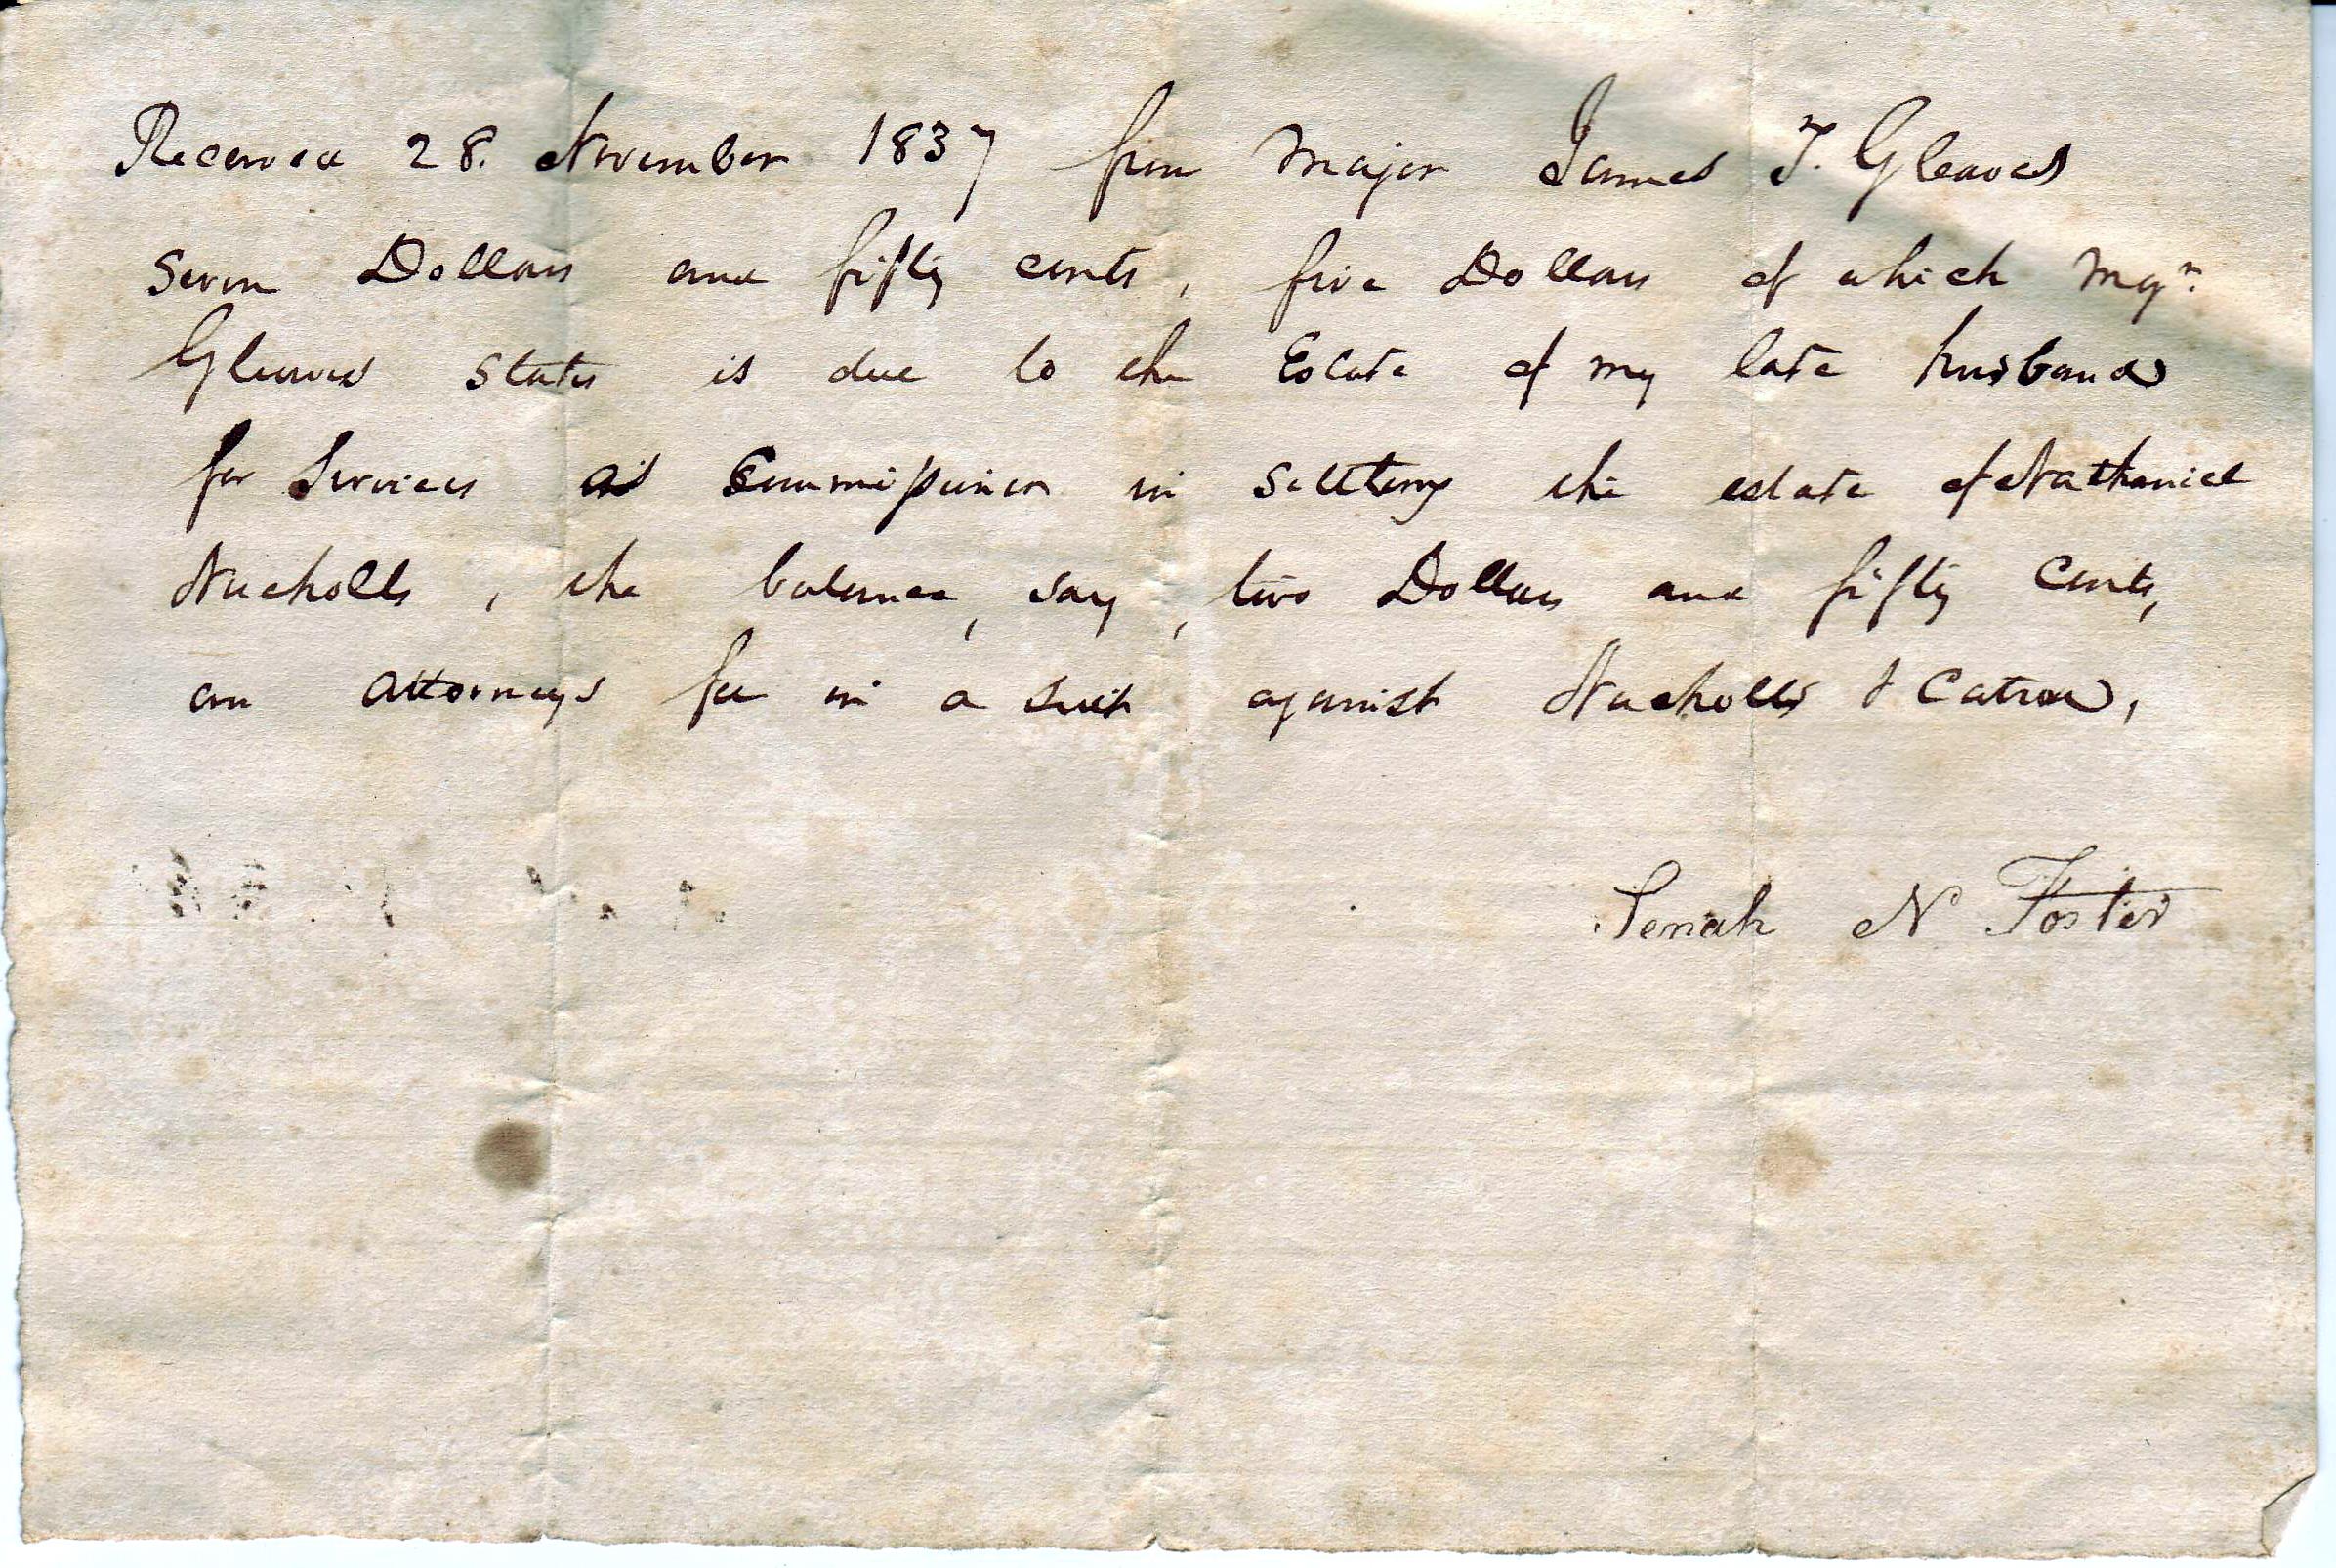 Received 28. November 1837 from Major James T. Gleaves
Seven Dollars and fifty cents, five Dollars of which Majr.
Gleaves states is due to the Estate of my late husband
for Services as Commissioner in settling the estate of Nathaniel
Nuckolls, the balance, say, two Dollars and fifty Cents,
an attorneys fee in a suit against Nuckolls & Catron,
N Foster